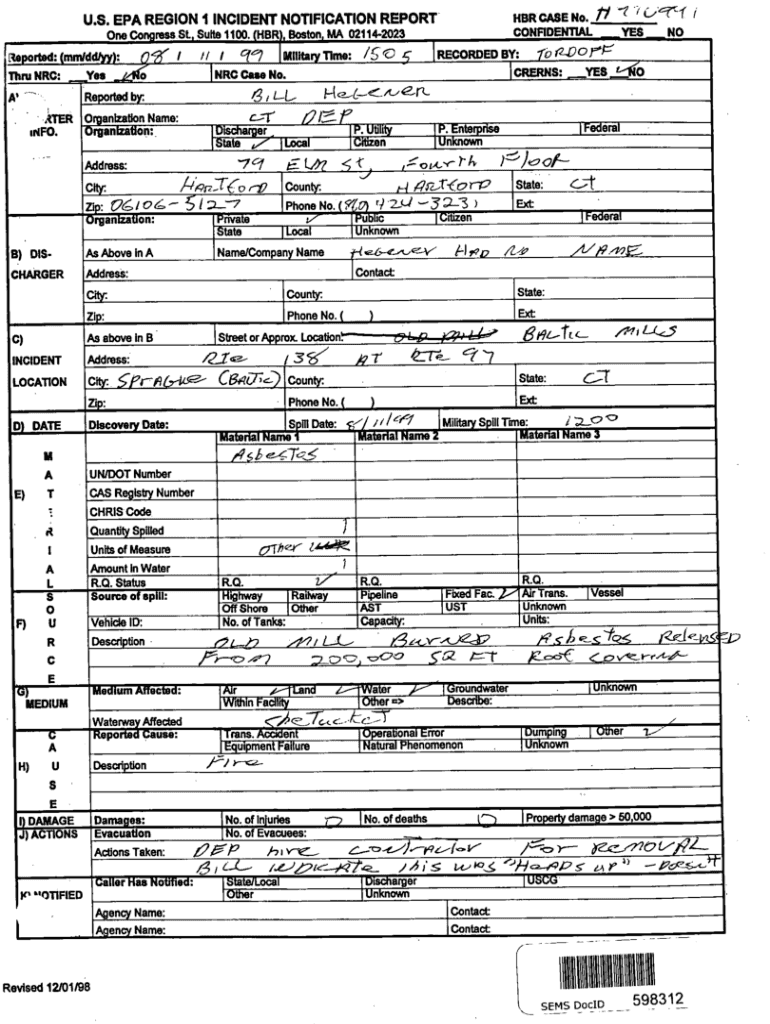 U.S. EPA REGION 1 INCIDENT NOTIFICATION REPORT HBR CASE No.
One Congress St., Suite 1100. (HBR), Boston, MA 02114-2023 CONFIDENTIAL YES NO
Reported: (mm/dd/yy): 08 / 11 / 99 Military Time: 1505 RECORDED BY: TORDOFF
Thru NRC: Yes ✓No NRC Case No. CRERNS: YES ✓NO
Reported by: BILL HEGENER
RTER Organization Name: CT DEP
INFO. Organization: Discharger P. Utility P. Enterprise Federal
State ✓ Local Citizen Unknown
Address: 79 ELM St, Fourth Floor
City: HARTFORD County: HARTFORD State: CT
Zip: 06106-5127 Phone No. (860) 424-3231 Ext:
Organization: Private ✓ Public Citizen Federal
State Local Unknown
B) DIS- As Above in A Name/Company Name HEGENER HAD NO NAME
CHARGER Address: Contact:
City: County: State:
Zip: Phone No. ( ) Ext:
C) As above in B Street or Approx. Location: BALTIC MILLS
INCIDENT Address: RTE 138 AT RTE 97
LOCATION City: SPRAGUE (BALTIC) County: State: CT
Zip: Phone No. ( ) Ext:
D) DATE Discovery Date: Spill Date: 8/11/99 Military Spill Time: 1200
Material Name 1 Material Name 2 Material Name 3
M Asbestos
A UN/DOT Number
E) T CAS Registry Number
E CHRIS Code
R Quantity Spilled 1
I Units of Measure OTHER
A Amount in Water 1
L R.Q. Status R.Q. ✓ R.Q. R.Q.
S Source of spill: Highway Railway Pipeline Fixed Fac. ✓ Air Trans. Vessel
O Off Shore Other AST UST Unknown
F) U Vehicle ID: No. of Tanks: Capacity: Units:
R Description OLD MILL BURNED Asbestos Released
C FROM 200,000 SQ FT ROOF COVERING
E
G) Medium Affected: Air ✓ Land ✓ Water ✓ Groundwater Unknown
MEDIUM Within Facility Other => Describe:
Waterway Affected SheTucket
C Reported Cause: Trans. Accident Operational Error Dumping Other ✓
A Equipment Failure Natural Phenomenon Unknown
H) U Description Fire
S
E
I) DAMAGE Damages: No. of Injuries 0 No. of deaths 0 Property damage > 50,000
J) ACTIONS Evacuation No. of Evacuees:
Actions Taken: DEP hire contractor FOR REMOVAL
BILL INDICATE this was "HEADS UP" - Doesn't
Caller Has Notified: State/Local Discharger USCG
K) NOTIFIED Other Unknown
Agency Name: Contact:
Agency Name: Contact:
Revised 12/01/98
SEMS DocID 598312